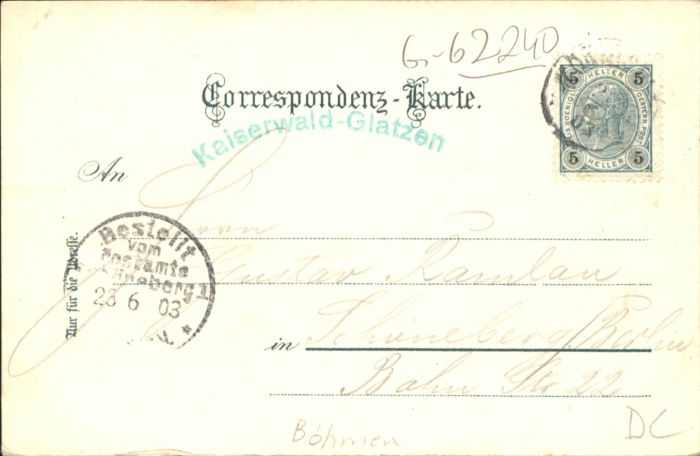 G-62240
Correspondenz-Karte.
Kaiserwald-Glatzen
5 HELLER 5
5 HELLER 5
An
Herrn
Gustav Ramlau
in Schöneberg/Berlin
Bahn Str 22
Nur für die Adresse.
Bestellt
vom
Postamte
Schöneberg 1
23 6 03
Böhmen
DC